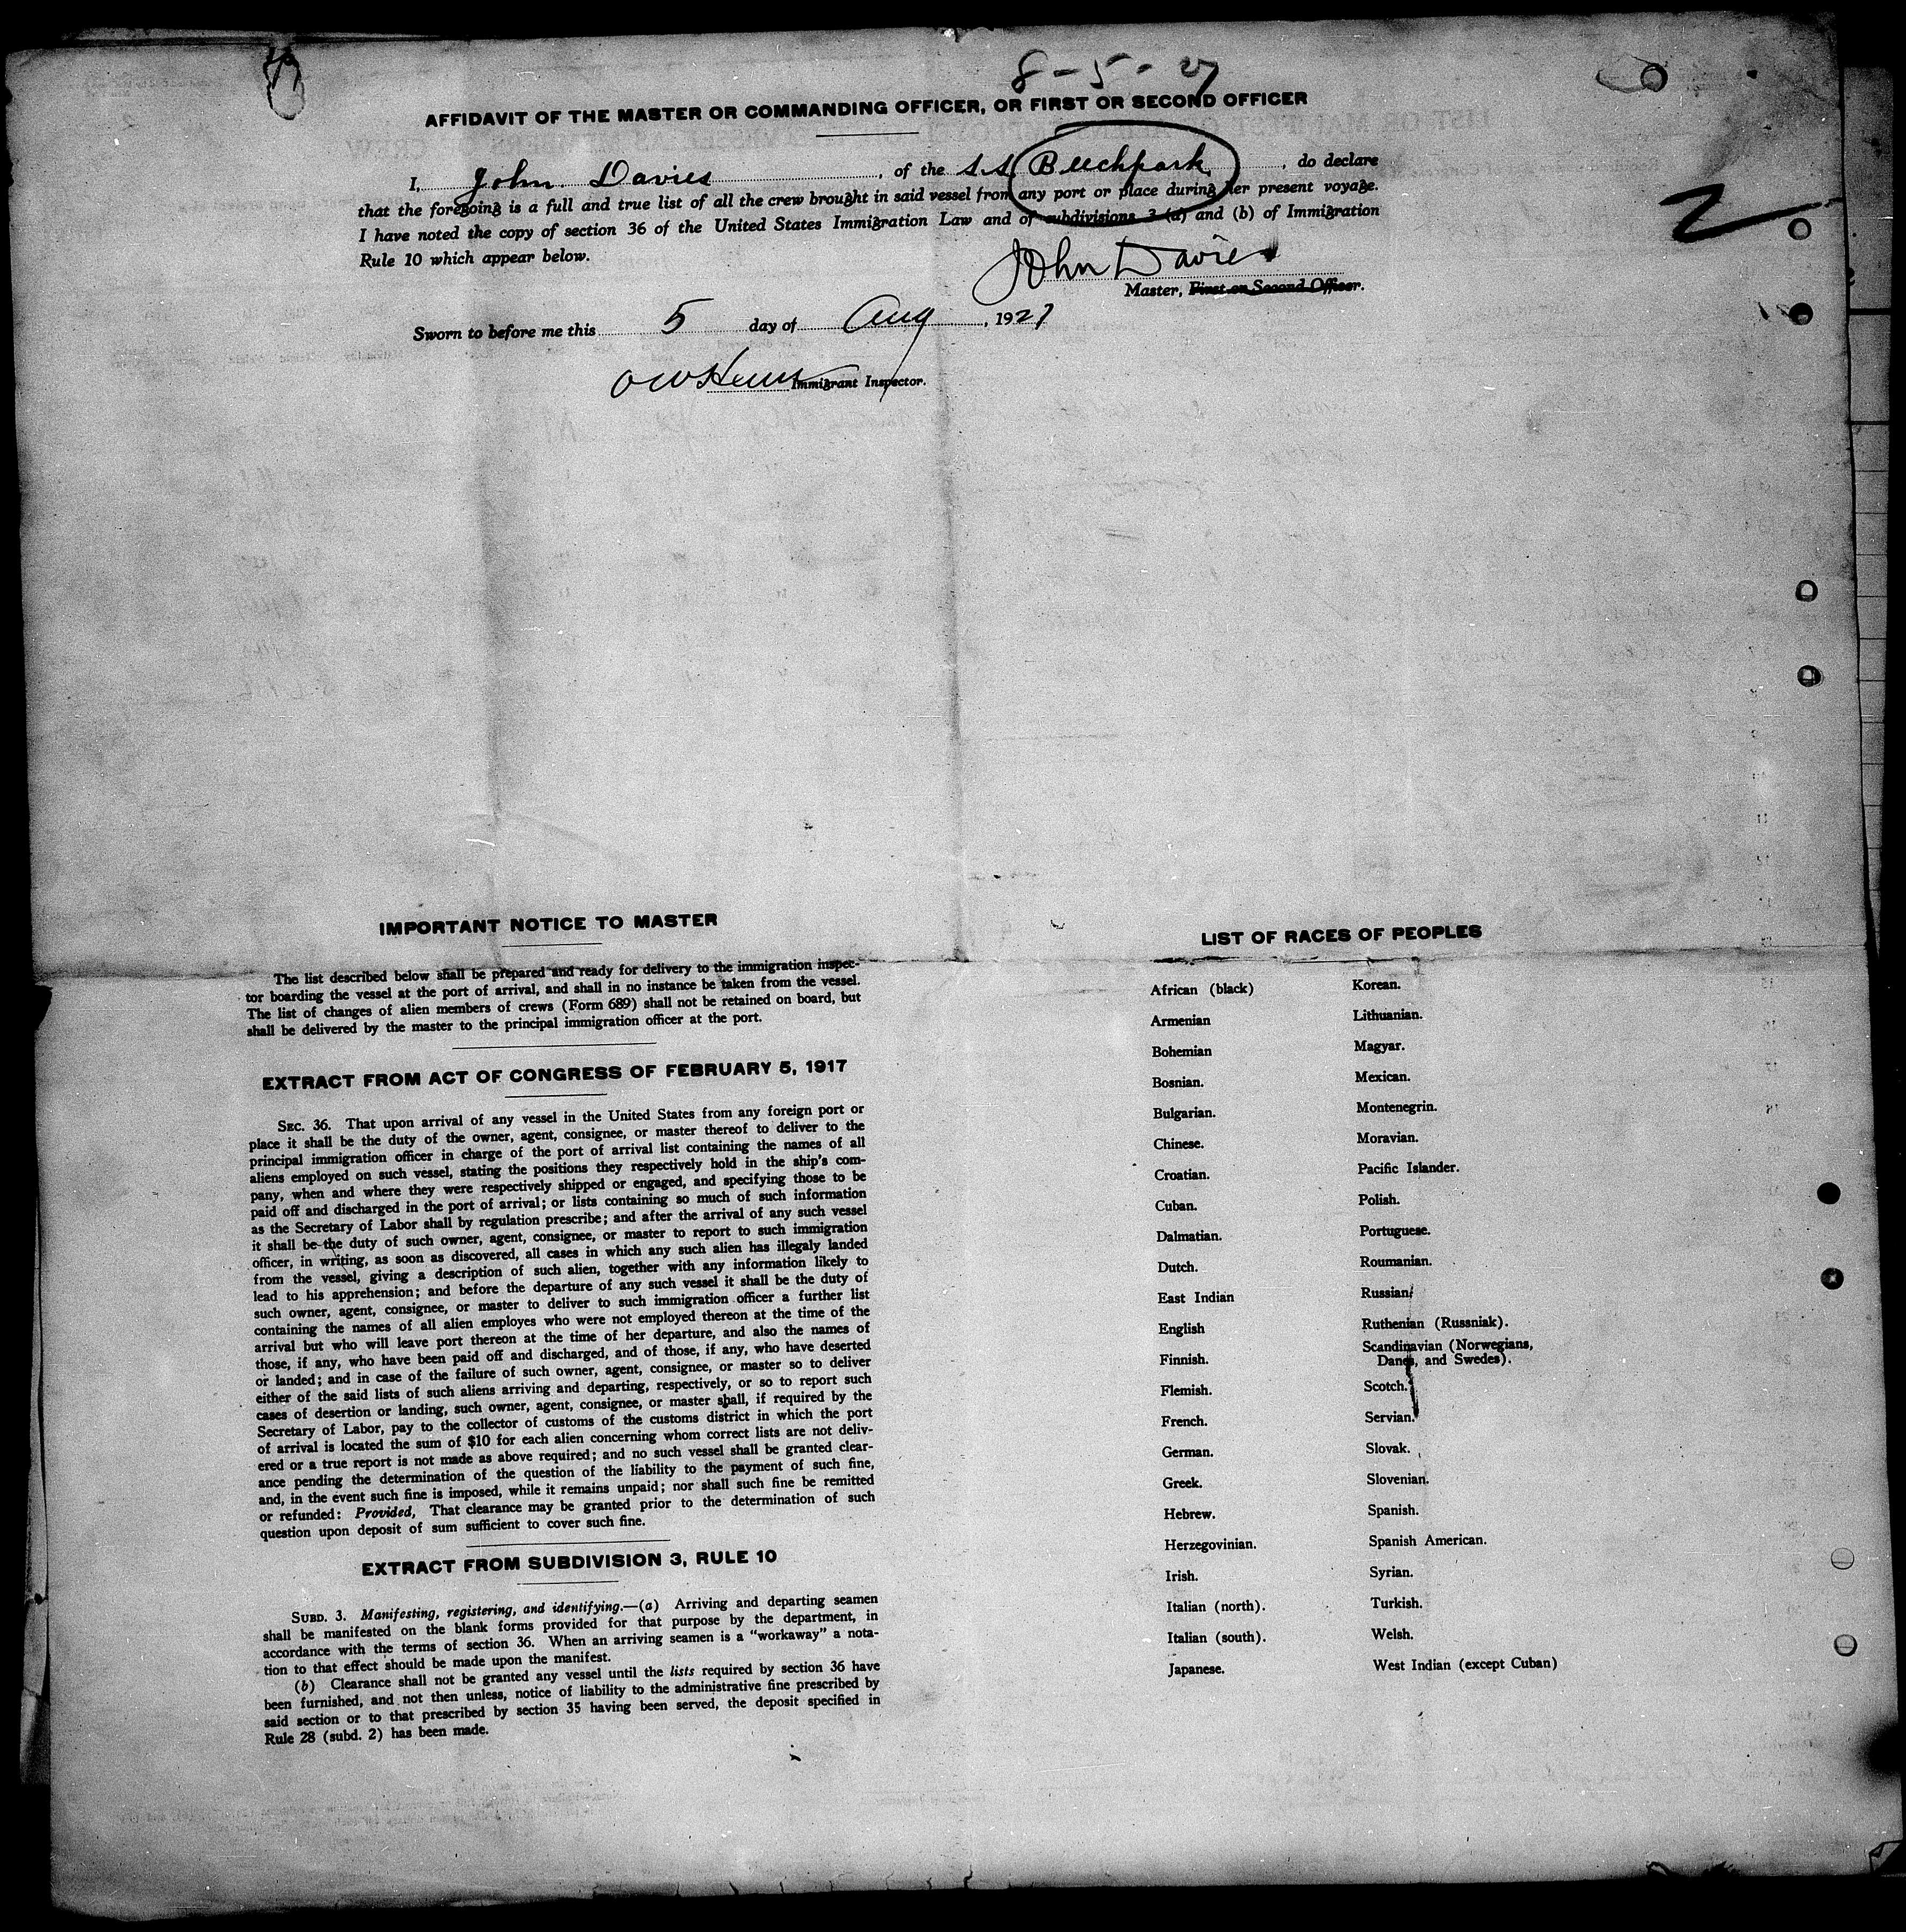 8-5-27
AFFIDAVIT OF THE MASTER OR COMMANDING OFFICER, OR FIRST OR SECOND OFFICER
I, John Davies, of the S.S. Beechpark, do declare
that the foregoing is a full and true list of all the crew brought in said vessel from any port or place during her present voyage.
I have noted the copy of section 36 of the United States Immigration Law and of subdivisions 3 (a) and (b) of Immigration
Rule 10 which appear below.
John Davies
Master, First or Second Officer.
Sworn to before me this 5 day of Aug, 1927
Immigrant Inspector.
2
IMPORTANT NOTICE TO MASTER
The list described below shall be prepared and ready for delivery to the immigration inspec-
tor boarding the vessel at the port of arrival, and shall in no instance be taken from the vessel.
The list of changes of alien members of crews (Form 689) shall not be retained on board, but
shall be delivered by the master to the principal immigration officer at the port.
EXTRACT FROM ACT OF CONGRESS OF FEBRUARY 5, 1917
SEC. 36. That upon arrival of any vessel in the United States from any foreign port or
place it shall be the duty of the owner, agent, consignee, or master thereof to deliver to the
principal immigration officer in charge of the port of arrival list containing the names of all
aliens employed on such vessel, stating the positions they respectively hold in the ship's com-
pany, when and where they were respectively shipped or engaged, and specifying those to be
paid off and discharged in the port of arrival; or lists containing so much of such information
as the Secretary of Labor shall by regulation prescribe; and after the arrival of any such vessel
it shall be the duty of such owner, agent, consignee, or master to report to such immigration
officer, in writing, as soon as discovered, all cases in which any such alien has illegaly landed
from the vessel, giving a description of such alien, together with any information likely to
lead to his apprehension; and before the departure of any such vessel it shall be the duty of
such owner, agent, consignee, or master to deliver to such immigration officer a further list
containing the names of all alien employes who were not employed thereon at the time of the
arrival but who will leave port thereon at the time of her departure, and also the names of
those, if any, who have been paid off and discharged, and of those, if any, who have deserted
or landed; and in case of the failure of such owner, agent, consignee, or master so to deliver
either of the said lists of such aliens arriving and departing, respectively, or so to report such
cases of desertion or landing, such owner, agent, consignee, or master shall, if required by the
Secretary of Labor, pay to the collector of customs of the customs district in which the port
of arrival is located the sum of $10 for each alien concerning whom correct lists are not deliv-
ered or a true report is not made as above required; and no such vessel shall be granted clear-
ance pending the determination of the question of the liability to the payment of such fine,
and, in the event such fine is imposed, while it remains unpaid; nor shall such fine be remitted
or refunded: Provided, That clearance may be granted prior to the determination of such
question upon deposit of sum sufficient to cover such fine.
EXTRACT FROM SUBDIVISION 3, RULE 10
SUBD. 3. Manifesting, registering, and identifying.—(a) Arriving and departing seamen
shall be manifested on the blank forms provided for that purpose by the department, in
accordance with the terms of section 36. When an arriving seamen is a "workaway" a nota-
tion to that effect should be made upon the manifest.
(b) Clearance shall not be granted any vessel until the lists required by section 36 have
been furnished, and not then unless, notice of liability to the administrative fine prescribed by
said section or to that prescribed by section 35 having been served, the deposit specified in
Rule 28 (subd. 2) has been made.
LIST OF RACES OF PEOPLES
African (black)
Armenian
Bohemian
Bosnian.
Bulgarian.
Chinese.
Croatian.
Cuban.
Dalmatian.
Dutch.
East Indian
English
Finnish.
Flemish.
French.
German.
Greek.
Hebrew.
Herzegovinian.
Irish.
Italian (north).
Italian (south).
Japanese.
Korean.
Lithuanian.
Magyar.
Mexican.
Montenegrin.
Moravian.
Pacific Islander.
Polish.
Portuguese.
Roumanian.
Russian.
Ruthenian (Russniak).
Scandinavian (Norwegians,
Danes, and Swedes).
Scotch.
Servian.
Slovak.
Slovenian.
Spanish.
Spanish American.
Syrian.
Turkish.
Welsh.
West Indian (except Cuban)